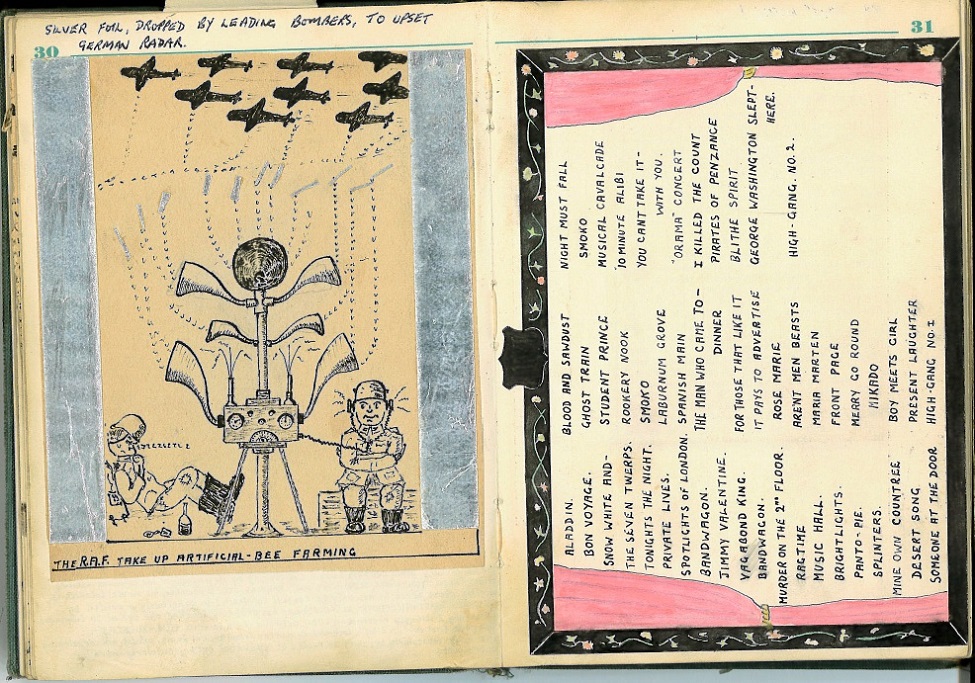 SILVER FOIL, DROPPED BY LEADING BOMBERS, TO UPSET
GERMAN RADAR.
30
THE R.A.F. TAKE UP ARTIFICIAL-BEE FARMING
31
ALADDIN.
BON VOYAGE.
SNOW WHITE AND-
THE SEVEN TWERPS.
TONIGHTS THE NIGHT.
PRIVATE LIVES.
SPOTLIGHTS OF LONDON.
BANDWAGON.
JIMMY VALENTINE.
VAGABOND KING.
BANDWAGON.
MURDER ON THE 2ND FLOOR.
RAGTIME
MUSIC HALL.
BRIGHTLIGHTS.
PANTO-PIE.
SPLINTERS.
MINE OWN COUNTREE
DESERT SONG
SOMEONE AT THE DOOR
BLOOD AND SAWDUST
GHOST TRAIN
STUDENT PRINCE
ROOKERY NOOK
SMOKO
LABURNUM GROVE
SPANISH MAIN
THE MAN WHO CAME TO-
DINNER
FOR THOSE THAT LIKE IT
IT PAYS TO ADVERTISE
ROSE MARIE
AREN'T MEN BEASTS
MARIA MARTEN
FRONT PAGE
MERRY GO ROUND
MIKADO
BOY MEETS GIRL
PRESENT LAUGHTER
HIGH-GANG NO.1
NIGHT MUST FALL
SMOKO
MUSICAL CAVALCADE
10 MINUTE ALIBI
YOU CANT TAKE IT-
WITH YOU.
"ORAMA" CONCERT
I KILLED THE COUNT
PIRATES OF PENZANCE
BLITHE SPIRIT
GEORGE WASHINGTON SLEPT-
HERE.
HIGH-GANG. NO.2.